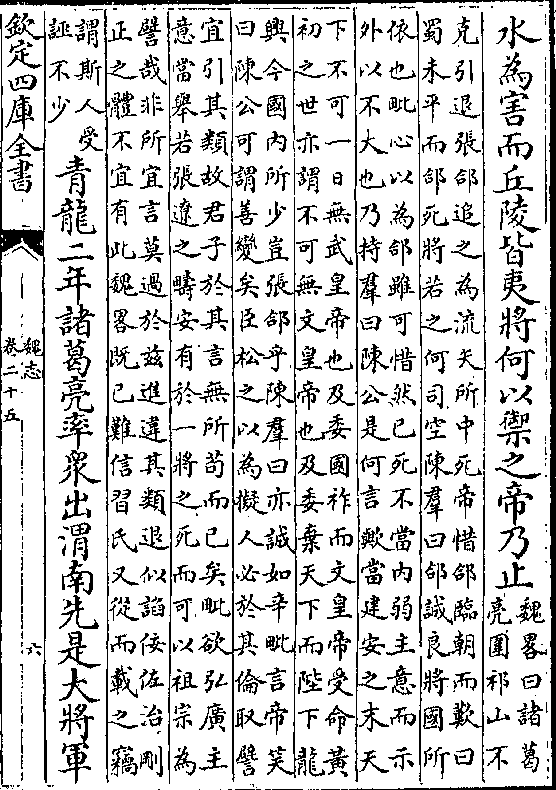 水為害而丘陵皆夷將何以禦之帝乃止
魏畧曰諸葛
亮圍祁山不
克引退張郃追之為流矢所中死帝惜郃臨朝而歎曰
蜀未平而郃死將若之何司空陳羣曰郃誠良將國所
依也毗心以為郃雖可惜然已死不當内弱主意而示
外以不大也乃持羣曰陳公是何言歟當建安之末天
下不可一日無武皇帝也及委國祚而文皇帝受命黄
初之世亦謂不可無文皇帝也及委棄天下而陛下龍
興今國内所少豈張郃乎陳羣曰亦誠如辛毗言帝笑
曰陳公可謂善變矣臣松之以為擬人必於其倫取譬
宜引其類故君子於其言無所苟而已矣毗欲弘廣主
意當舉若張遼之疇安有於一將之死而可以祖宗為
譬哉非所宜言莫過於兹進違其類退似諂佞佐治剛
正之體不宜有此魏畧既已難信習氏又從而載之竊
謂斯人受
誣不少
青龍二年諸葛亮率衆出渭南先是大將軍
欽定四庫全書
魏志
卷二十五
六